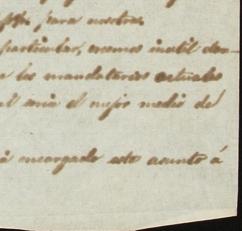 para nosotros.
particular, creemos inutil don-
a los mandatarios actuales
al seria el mejor medio de
á encargado este asunto á